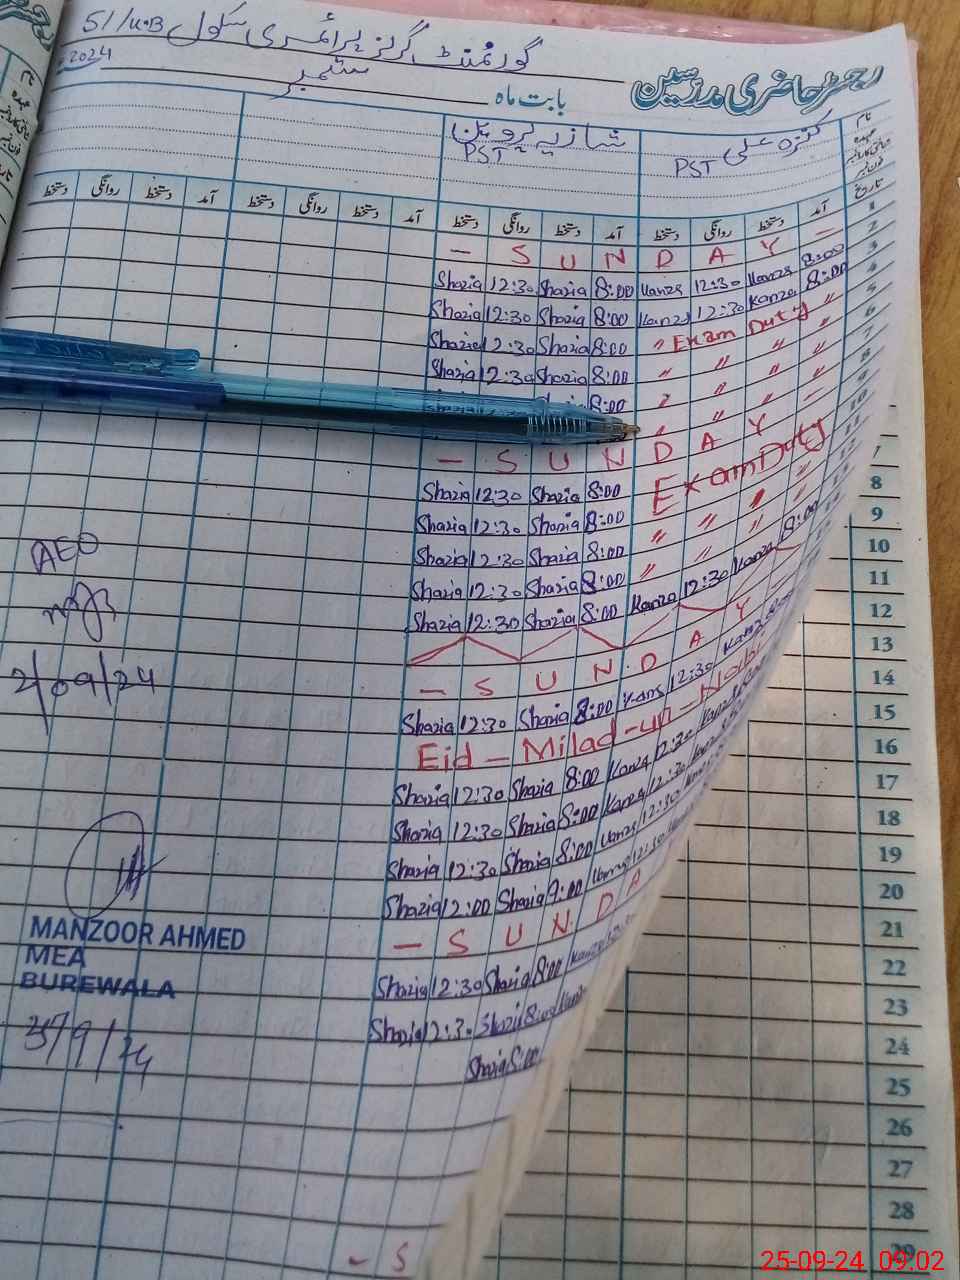 گورنمنٹ گرلز پرائمری سکول 51/K.B
رجسٹر حاضری مدرسین
بابت ماہ ستمبر 2024
نام
عہدہ
فون نمبر
تاریخ
کنزہ علی PST
شازیہ پروین PST
آمد دستخط روانگی دستخط آمد دستخط روانگی دستخط آمد دستخط روانگی دستخط آمد دستخط روانگی دستخط
1
2
3
4
5
6
7
8
9
10
11
— S U N D A Y —
Shazia 12:30 Shazia 8:00 Kanza 12:30 Kanza 8:00
Shazia 12:30 Shazia 8:00 Kanza 12:30 Kanza 8:00
Shazia 12:30 Shazia 8:00 " Exam Duty "
Shazia 12:30 Shazia 8:00 " " " "
8:00 " " " "
" " " —
— S U N D A Y
Shazia 12:30 Shazia 8:00 Exam Duty
Shazia 12:30 Shazia 8:00 " " " "
Shazia 12:30 Shazia 8:00 " " " "
Shazia 12:30 Shazia 8:00
Shazia 12:30 Shazia 8:00 Kanza 12:30 Kanza 8:00
— S U N D A Y
Shazia 12:30 Shazia 8:00 Kanz 12:30 Kanza
Eid — Milad-un-Nabi
Shazia 12:30 Shazia 8:00 Kanza 12:30 Kanza
Shazia 12:30 Shazia 8:00 Kanza 12:30
Shazia 12:30 Shazia 8:00 Kanza 12:30
Shazia 12:00 Shazia 9:00 12:30
— S U N D A
Shazia 12:30 Shazia 8:00 Kanza
Shazia 12:30 Shazia 8:00
Shazia 8:00
- S
AEO
2/09/24
MANZOOR AHMED
MEA
BUREWALA
7
8
9
10
11
12
13
14
15
16
17
18
19
20
21
22
23
24
25
26
27
28
29
25-09-24 09:02